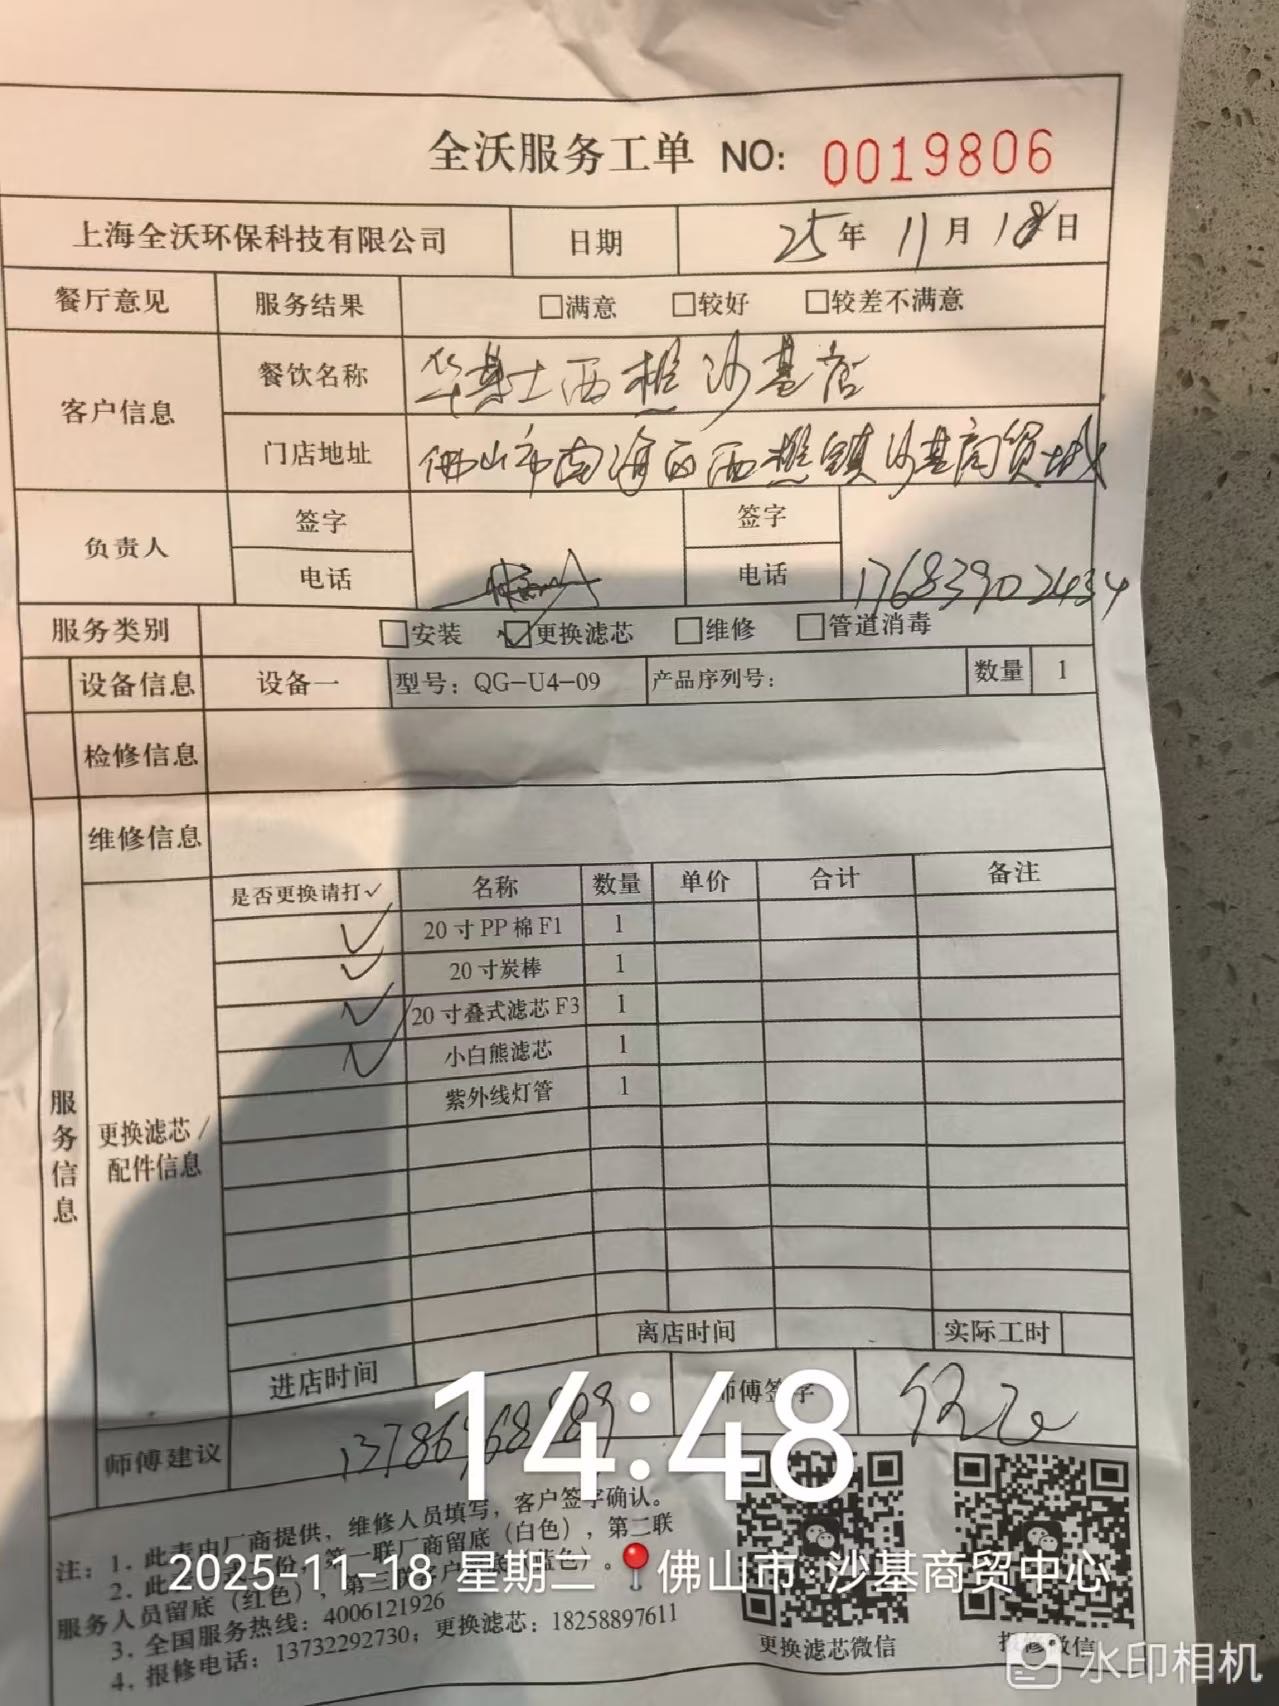 全沃服务工单 NO: 0019806
上海全沃环保科技有限公司 日期 25年 11月 18日
餐厅意见 服务结果 □满意 □较好 □较差不满意
客户信息 餐饮名称 华莱士西樵沙基店
门店地址 佛山市南海区西樵镇沙基商贸城
负责人 签字 签字
电话 电话 17683902434
服务类别 □安装 ☑更换滤芯 □维修 □管道消毒
设备信息 设备一 型号：QG-U4-09 产品序列号： 数量 1
检修信息
维修信息
服务信息
更换滤芯/配件信息
是否更换请打✓ 名称 数量 单价 合计 备注
✓ 20寸PP棉F1 1
✓ 20寸炭棒 1
✓ 20寸叠式滤芯F3 1
✓ 小白熊滤芯 1
紫外线灯管 1
进店时间 离店时间 实际工时
师傅建议 师傅签字
14:48
注：1. 此表由厂商提供，维修人员填写，客户签字确认。
2. 此 份，第一联厂商留底（白色），第二联
服务人员留底（红色），第三联客户 蓝色）。
3. 全国服务热线：4006121926
4. 报修电话：13732292730；更换滤芯：18258897611
2025-11-18 星期二 📍佛山市·沙基商贸中心
更换滤芯微信 报修微信
水印相机